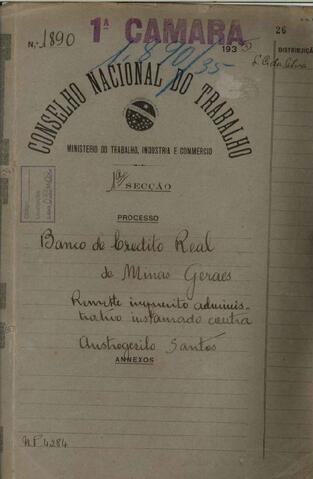 1ª CAMARA
26
N.º 1890
1.890/35
1935
DISTRIBUIÇÃO
CONSELHO NACIONAL DO TRABALHO
MINISTERIO DO TRABALHO, INDUSTRIA E COMMERCIO
1ª SECÇÃO
PROCESSO
Banco de Credito Real
de Minas Geraes
Remitte inquerito adminis-
trativo instaurado contra
Austrogesilo Santos
ANNEXOS
N.P. 4284